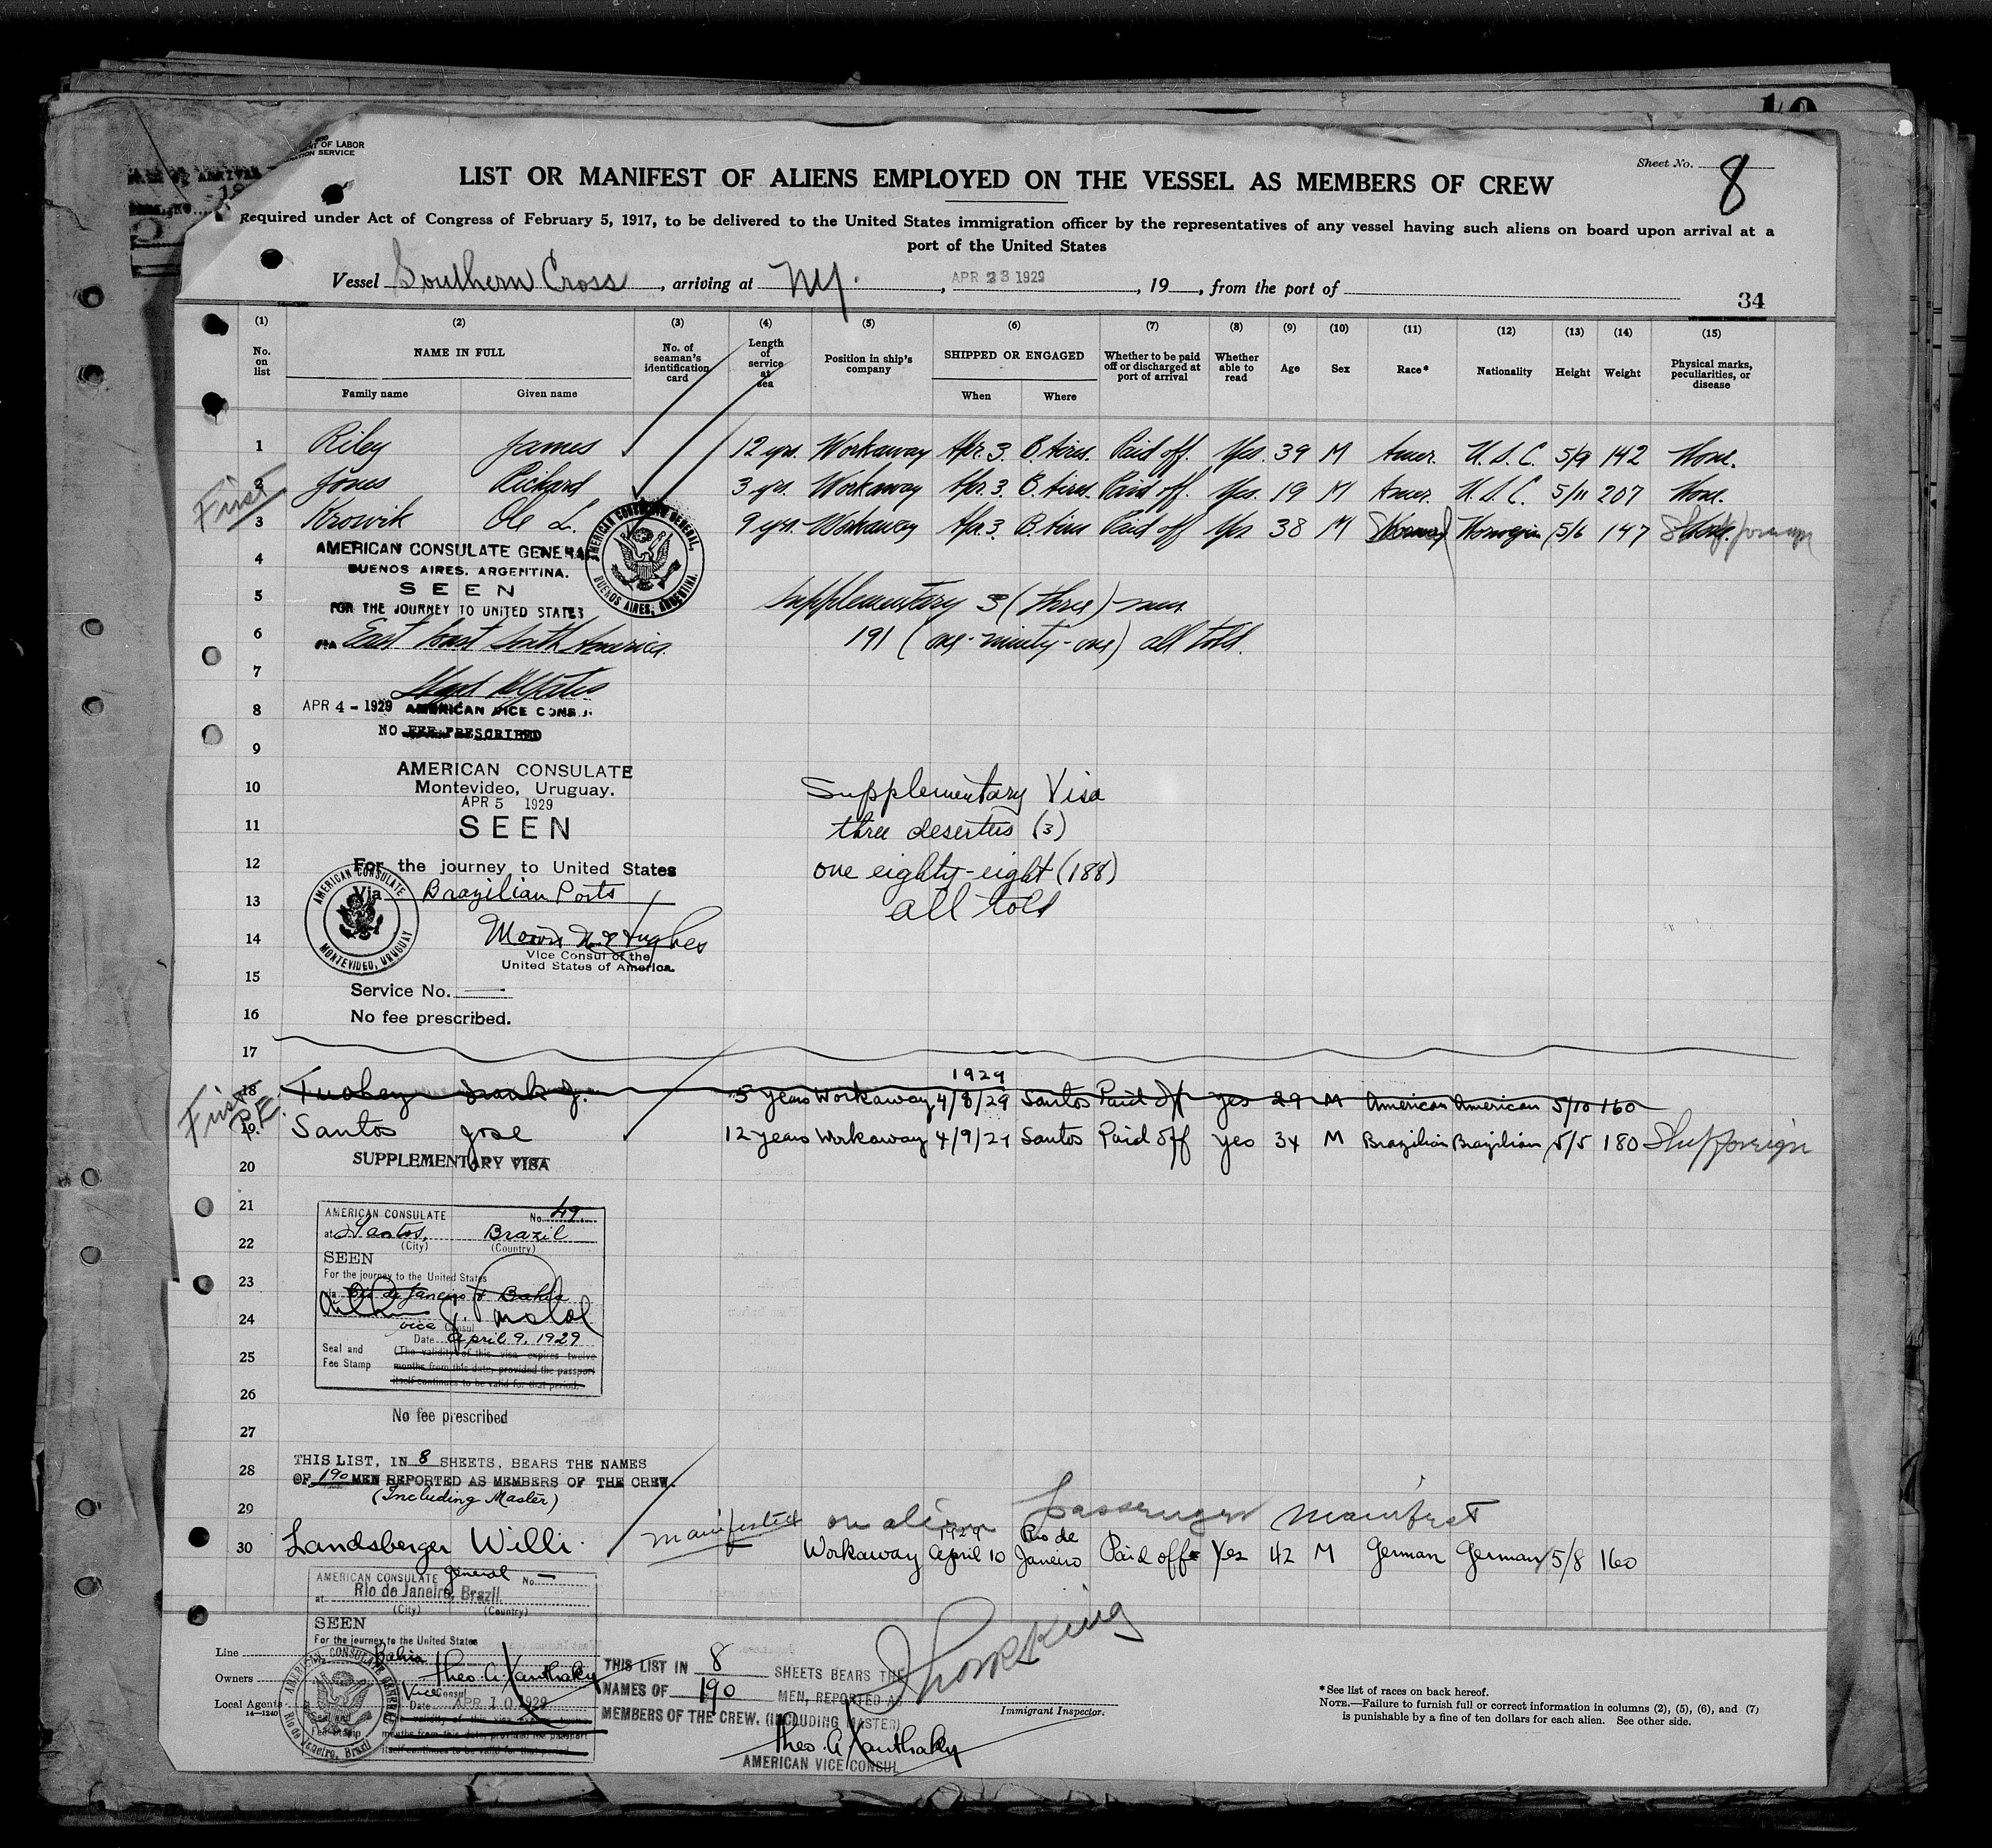 OF LABOR
SERVICE
Sheet No. 8
LIST OR MANIFEST OF ALIENS EMPLOYED ON THE VESSEL AS MEMBERS OF CREW
Required under Act of Congress of February 5, 1917, to be delivered to the United States immigration officer by the representatives of any vessel having such aliens on board upon arrival at a
port of the United States
Vessel Southern Cross, arriving at NY., APR 23 1929, 19__, from the port of
34
(1) (2) (3) (4) (5) (6) (7) (8) (9) (10) (11) (12) (13) (14) (15)
No. on list
NAME IN FULL
Family name Given name
No. of seaman's identification card
Length of service at sea
Position in ship's company
SHIPPED OR ENGAGED
When Where
Whether to be paid off or discharged at port of arrival
Whether able to read
Age
Sex
Race*
Nationality
Height
Weight
Physical marks, peculiarities, or disease
1 Riley James 12 yrs. Workaway Apr. 3. B. Aires. Paid off. Yes. 39 M Amer. U.S.C. 5/9 142 None.
First
2 Jones Richard 3 yrs. Workaway Apr. 3. B. Aires. Paid off. Yes. 19 M Amer. U.S.C. 5/11 207 None.
3 Krowik Ole L. 9 yrs. Workaway Apr. 3. B. Aires Paid off Yes 38 M Norwegian 5/6 147
4 AMERICAN CONSULATE GENERAL
BUENOS AIRES, ARGENTINA.
AMERICAN CONSULATE GENERAL, BUENOS AIRES, ARGENTINA.
5 SEEN
FOR THE JOURNEY TO UNITED STATES
Supplementary 3 (three) men
6 VIA East Coast South America.
191 (one-ninety-one) all told.
7
8 APR 4 - 1929 AMERICAN VICE CONSUL
NO FEE PRESCRIBED
9
AMERICAN CONSULATE
10 Montevideo, Uruguay.
APR 5 1929
Supplementary Visa
11 SEEN
three deserters (3)
12 For the journey to United States
one eighty-eight (188)
13 Via Brazilian Ports
all told
AMERICAN CONSULATE MONTEVIDEO, URUGUAY
14
Vice Consul of the
United States of America.
15 Service No.
16 No fee prescribed.
17
1929
First
P.E.
18 Tuohey Frank J. 5 years Workaway 4/8/29 Santos Paid off yes 29 M American American 5/10 160
19 Santos Jose 12 years Workaway 4/9/29 Santos Paid off yes 34 M Brazilian Brazilian 5/5 180 Ship foreign
20 SUPPLEMENTARY VISA
21 AMERICAN CONSULATE No. 49
at Santos, Brazil
22 (City) (Country)
SEEN
23 For the journey to the United States
via Rio de Janeiro & Bahia
24 vice Consul
Date April 9, 1929
25 Seal and Fee Stamp
(The validity of this visa expires twelve
months from this date, provided the passport
itself continues to be valid for that period.
26
No fee prescribed
27
THIS LIST, IN 8 SHEETS, BEARS THE NAMES
28 OF 190 MEN REPORTED AS MEMBERS OF THE CREW.
(Including Master)
29 manifested on alien passenger manifest
30 Landsberger Willi. Workaway 1929 April 10 Rio de Janeiro Paid off Yes 42 M German German 5/8 160
AMERICAN CONSULATE general No. —
at Rio de Janeiro, Brazil.
(City) (Country)
SEEN
For the journey to the United States
Bahia
Theo. A. Xanthaky
Vice Consul
Date APR 10 1929
AMERICAN CONSULATE GENERAL Rio de Janeiro, Brazil
Seal and Fee Stamp
validity of this visa expires twelve
months from this date, provided the passport
itself continues to be valid for that period.
Line
Owners
Local Agents
14—1240
THIS LIST IN 8 SHEETS BEARS THE
NAMES OF 190 MEN, REPORTED AS
MEMBERS OF THE CREW. (INCLUDING MASTER)
Theo. A. Xanthaky
AMERICAN VICE CONSUL
Immigrant Inspector.
*See list of races on back hereof.
NOTE.—Failure to furnish full or correct information in columns (2), (5), (6), and (7)
is punishable by a fine of ten dollars for each alien. See other side.